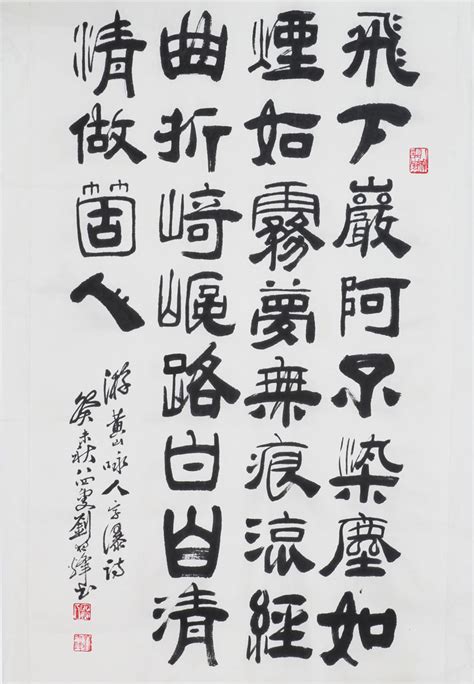 飛下巖阿不染塵如
煙如霧夢無痕涼經
曲折崎嶇路白白清
清做箇人
游黃山咏人字瀑詩
癸未秋八四叟劉書